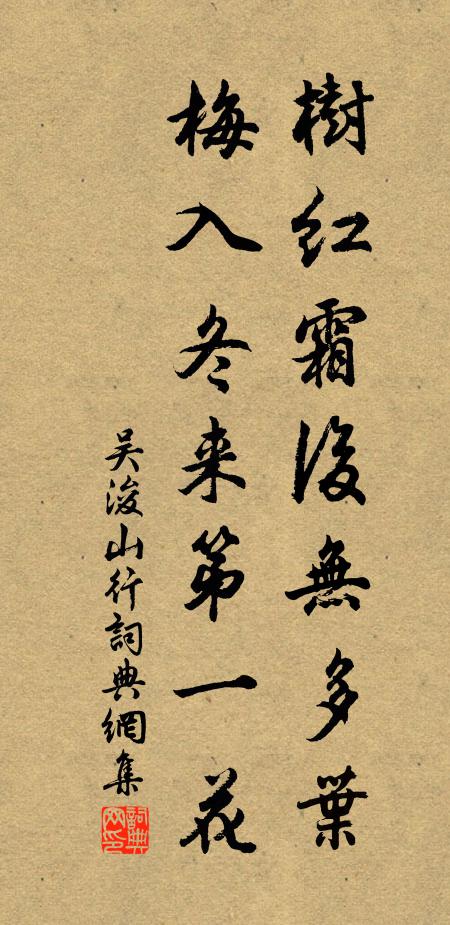 樹紅霜後無多葉
梅入冬來第一花
吴浚山行詞典網集
詞典網印